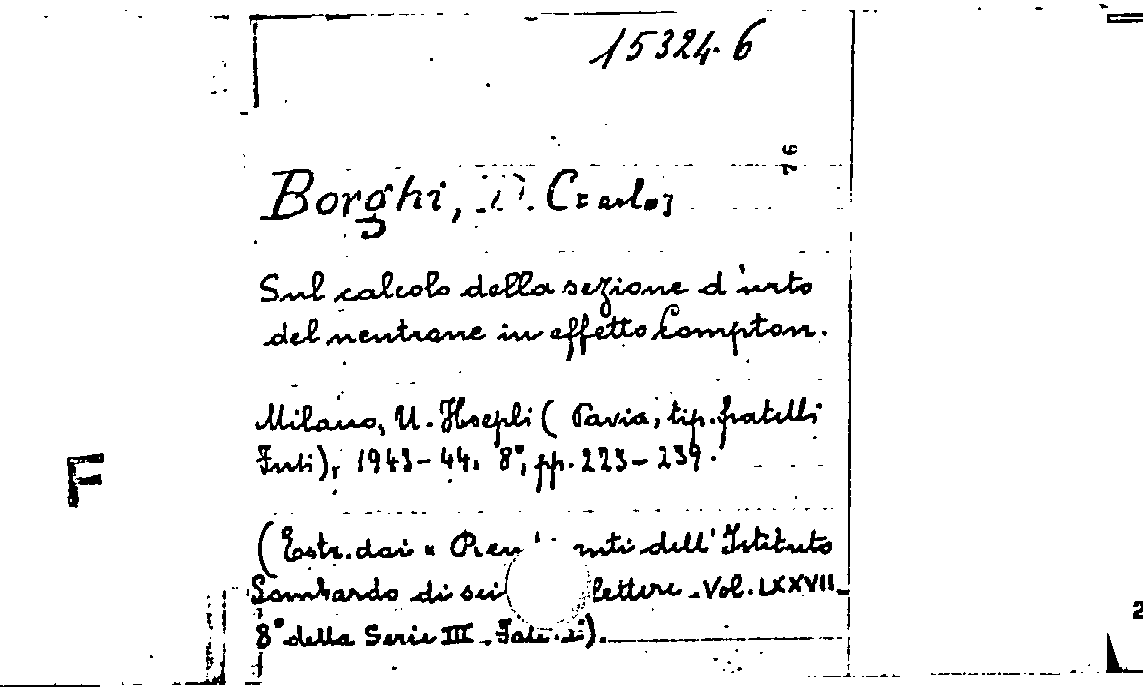 15324.6
76
Borghi, D. Carlo;
Sul calcolo della sezione d'urto
del neutrone in effetto Compton.
Milano, U. Hoepli (Pavia, tip. fratelli
Fusi), 1943-44. 8°, pp. 223-239.
F
(Estr. dai « Ren nti dell'Istituto
Lombardo di sci lettere - Vol. LXXVII -
8° della Serie III - Fasc.
2